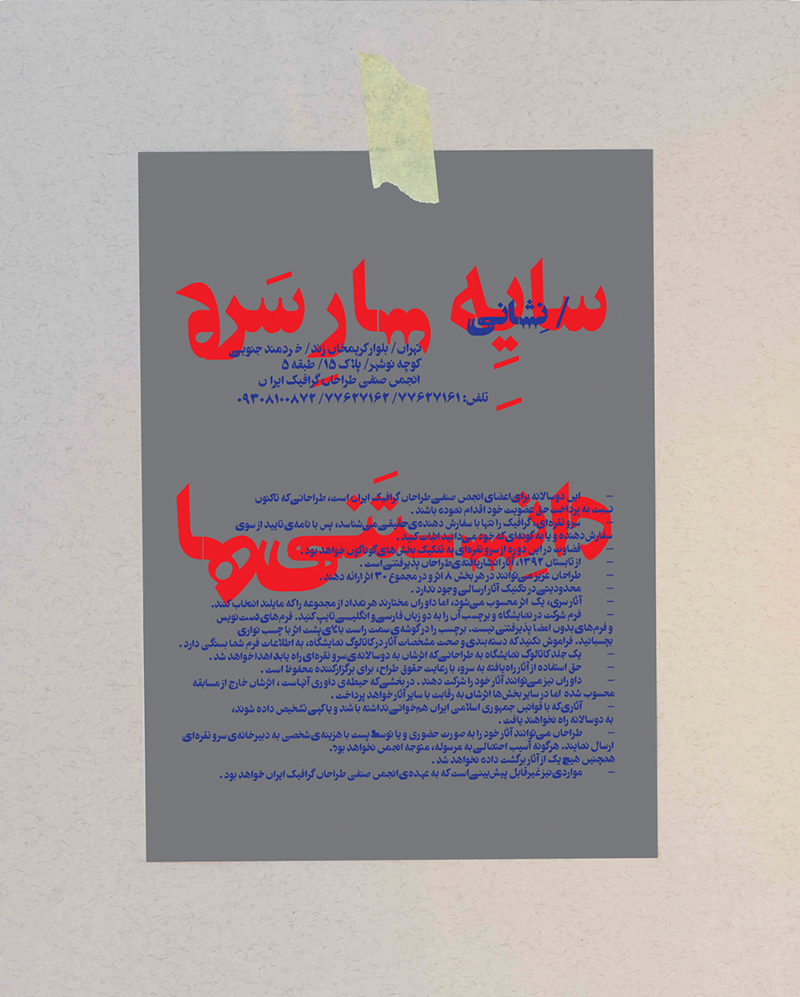 / نِشانی
تهران/ بلوار کریمخان زند/ خردمند جنوبی
کوچه نوشهر/ پلاک ۱۵/ طبقه ۵
انجمن صنفی طراحان گرافیک ایران
تلفن: ۷۷۶۲۷۱۶۱/ ۷۷۶۲۷۱۶۲/ ۰۹۳۰۸۱۰۰۸۷۲
— این دوسالانه برای اعضای انجمن صنفی طراحان گرافیک ایران است، طراحانی که تاکنون
نسبت به پرداخت حق عضویت خود اقدام نموده باشند.
— سرو نقره‌ای، گرافیک را تنها با سفارش دهنده‌ی حقیقی می‌شناسد، پس با نامه‌ی تایید از سوی
سفارش دهنده و یا به گونه‌ای که خود می‌دانید اثبات کنید.
— قضاوت در این دوره از سرو نقره‌ای به تفکیک بخش‌های گوناگون خواهد بود.
— از تابستان ۱۳۹۲، آثار انتشار یافته‌ی طراحان پذیرفتنی است.
— طراحان عزیز می‌توانند در هر بخش ۸ اثر و در مجموع ۳۰ اثر ارائه دهند.
— محدودیتی در تکنیک آثار ارسالی وجود ندارد.
— آثار سری، یک اثر محسوب می‌شود، اما داوران مختارند هر تعداد از مجموعه را که مایلند انتخاب کنند.
— فرم شرکت در نمایشگاه و برچسب آن را به دو زبان فارسی و انگلیسی تایپ کنید. فرم‌های دست‌نویس
و فرم‌های بدون امضا پذیرفتنی نیست. برچسب را در گوشه‌ی سمت راست بالای پشت اثر با چسب نواری
بچسبانید. فراموش نکنید که دسته‌بندی و صحت مشخصات آثار در کاتالوگ نمایشگاه، به اطلاعات فرم شما بستگی دارد.
— یک جلد کاتالوگ نمایشگاه به طراحانی که اثرشان به دوسالانه‌ی سرو نقره‌ای راه یابد اهدا خواهد شد.
— حق استفاده از آثار راه یافته به سرو، با رعایت حقوق طراح، برای برگزارکننده محفوظ است.
— داوران نیز می‌توانند آثار خود را شرکت دهند. در بخشی که حیطه‌ی داوری آنهاست، اثرشان خارج از مسابقه
محسوب شده اما در سایر بخش‌ها اثرشان به رقابت با سایر آثار خواهد پرداخت.
— آثاری که با قوانین جمهوری اسلامی ایران هم‌خوانی نداشته باشند و یا کپی تشخیص داده شوند،
به دوسالانه راه نخواهند یافت.
— طراحان می‌توانند آثار خود را به صورت حضوری و یا توسط پست با هزینه‌ی شخصی به دبیرخانه‌ی سرو نقره‌ای
ارسال نمایند. هرگونه آسیب احتمالی به مرسوله، متوجه انجمن نخواهد بود.
همچنین هیچ یک از آثار برگشت داده نخواهد شد.
— مواردی نیز غیر قابل پیش‌بینی است که به عهده‌ی انجمن صنفی طراحان گرافیک ایران خواهد بود.